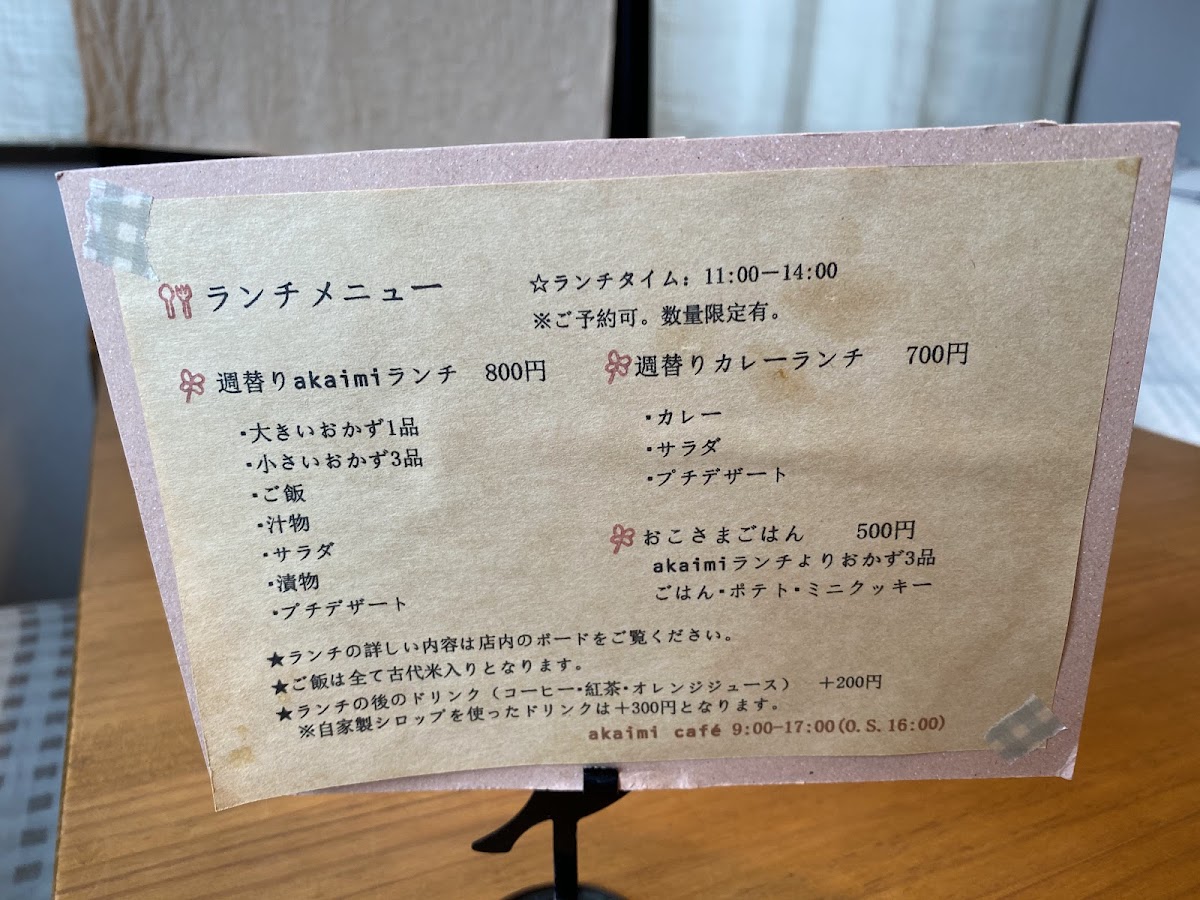 ランチメニュー
☆ランチタイム：11:00－14:00
※ご予約可。数量限定有。
週替りakaimiランチ 800円
・大きいおかず1品
・小さいおかず3品
・ご飯
・汁物
・サラダ
・漬物
・プチデザート
週替りカレーランチ 700円
・カレー
・サラダ
・プチデザート
おこさまごはん 500円
akaimiランチよりおかず3品
ごはん・ポテト・ミニクッキー
★ランチの詳しい内容は店内のボードをご覧ください。
★ご飯は全て古代米入りとなります。
★ランチの後のドリンク（コーヒー・紅茶・オレンジジュース） ＋200円
※自家製シロップを使ったドリンクは＋300円となります。
akaimi café 9:00-17:00(O.S.16:00)